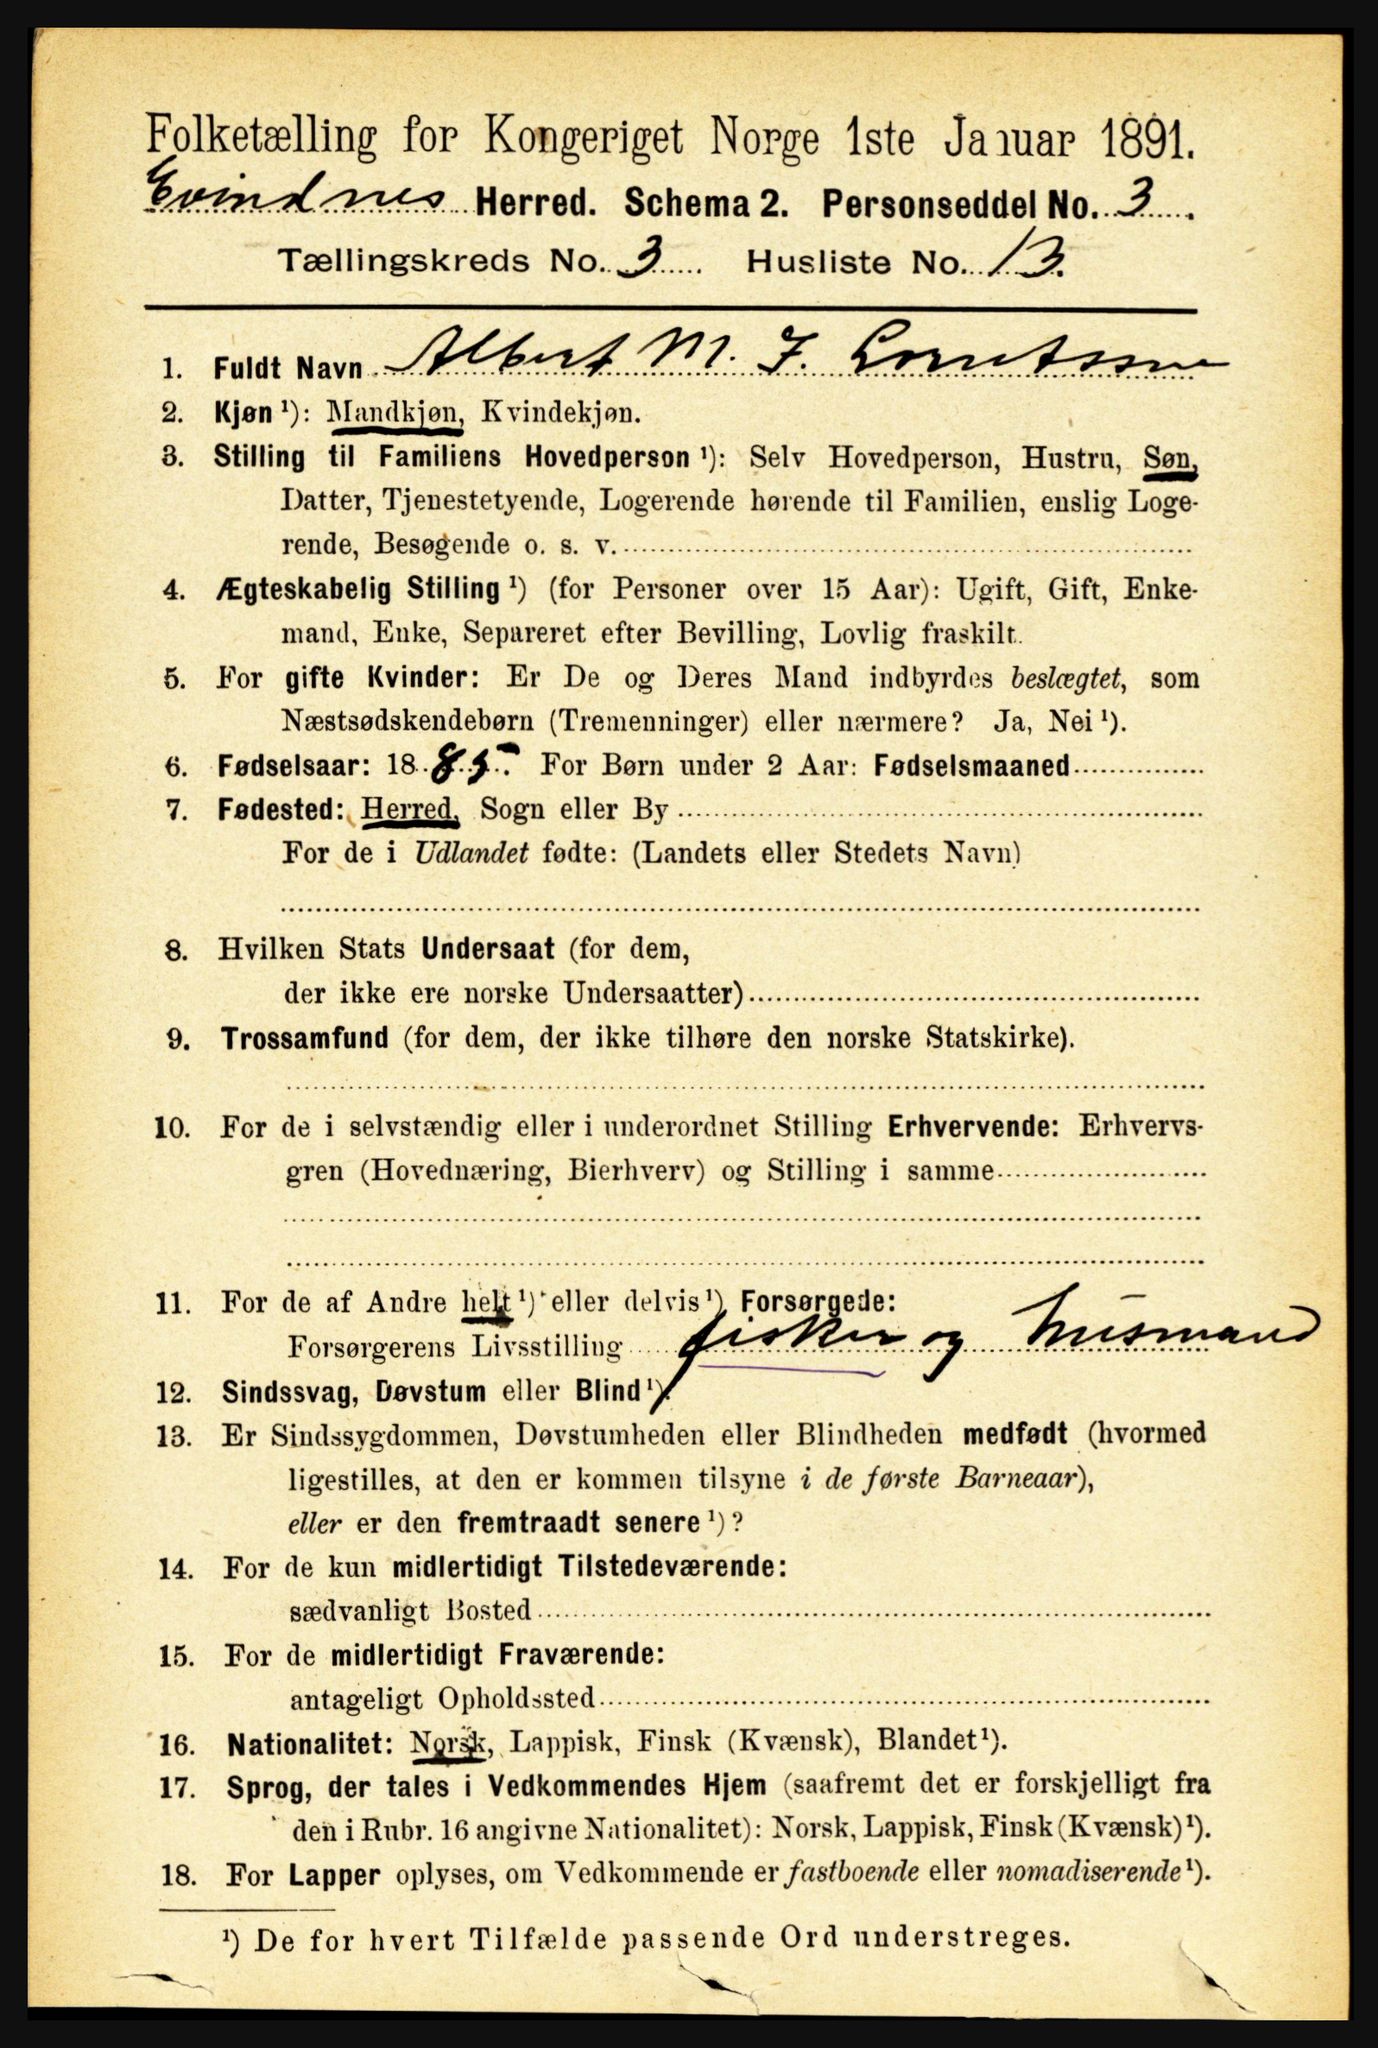 Folketælling for Kongeriget Norge 1ste Januar 1891.
Evindnes Herred. Schema 2. Personseddel No. 3
Tællingskreds No. 3 Husliste No. 13.
1. Fuldt Navn Albert M. J. Lorentssen
2. Kjøn ¹): Mandkjøn, Kvindekjøn.
3. Stilling til Familiens Hovedperson ¹): Selv Hovedperson, Hustru, Søn,
Datter, Tjenestetyende, Logerende hørende til Familien, enslig Loge-
rende, Besøgende o. s. v.
4. Ægteskabelig Stilling ¹) (for Personer over 15 Aar): Ugift, Gift, Enke-
mand, Enke, Separeret efter Bevilling, Lovlig fraskilt.
5. For gifte Kvinder: Er De og Deres Mand indbyrdes beslægtet, som
Næstsødskendebørn (Tremenninger) eller nærmere? Ja, Nei ¹).
6. Fødselsaar: 1885. For Børn under 2 Aar: Fødselsmaaned
7. Fødested: Herred, Sogn eller By
For de i Udlandet fødte: (Landets eller Stedets Navn)
8. Hvilken Stats Undersaat (for dem,
der ikke ere norske Undersaatter)
9. Trossamfund (for dem, der ikke tilhøre den norske Statskirke).
10. For de i selvstændig eller i underordnet Stilling Erhvervende: Erhvervs-
gren (Hovednæring, Bierhverv) og Stilling i samme
11. For de af Andre helt ¹) eller delvis ¹) Forsørgede:
Forsørgerens Livsstilling fisker og husmand
12. Sindssvag, Døvstum eller Blind ¹).
13. Er Sindssygdommen, Døvstumheden eller Blindheden medfødt (hvormed
ligestilles, at den er kommen tilsyne i de første Barneaar),
eller er den fremtraadt senere ¹)?
14. For de kun midlertidigt Tilstedeværende:
sædvanligt Bosted
15. For de midlertidigt Fraværende:
antageligt Opholdssted
16. Nationalitet: Norsk, Lappisk, Finsk (Kvænsk), Blandet ¹).
17. Sprog, der tales i Vedkommendes Hjem (saafremt det er forskjelligt fra
den i Rubr. 16 angivne Nationalitet): Norsk, Lappisk, Finsk (Kvænsk) ¹).
18. For Lapper oplyses, om Vedkommende er fastboende eller nomadiserende ¹).
¹) De for hvert Tilfælde passende Ord understreges.